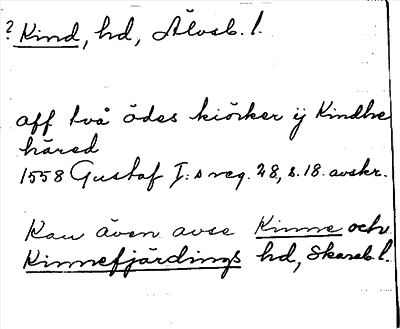 ? Kind, hd, Älvsb. l.
aff två ödes kiörker ij Kindhe
häred
1558 Gustaf I:s reg. 28, s. 18. avskr.
Kan även avse Kinne och
Kinnefjärdings hd, Skarab. l.